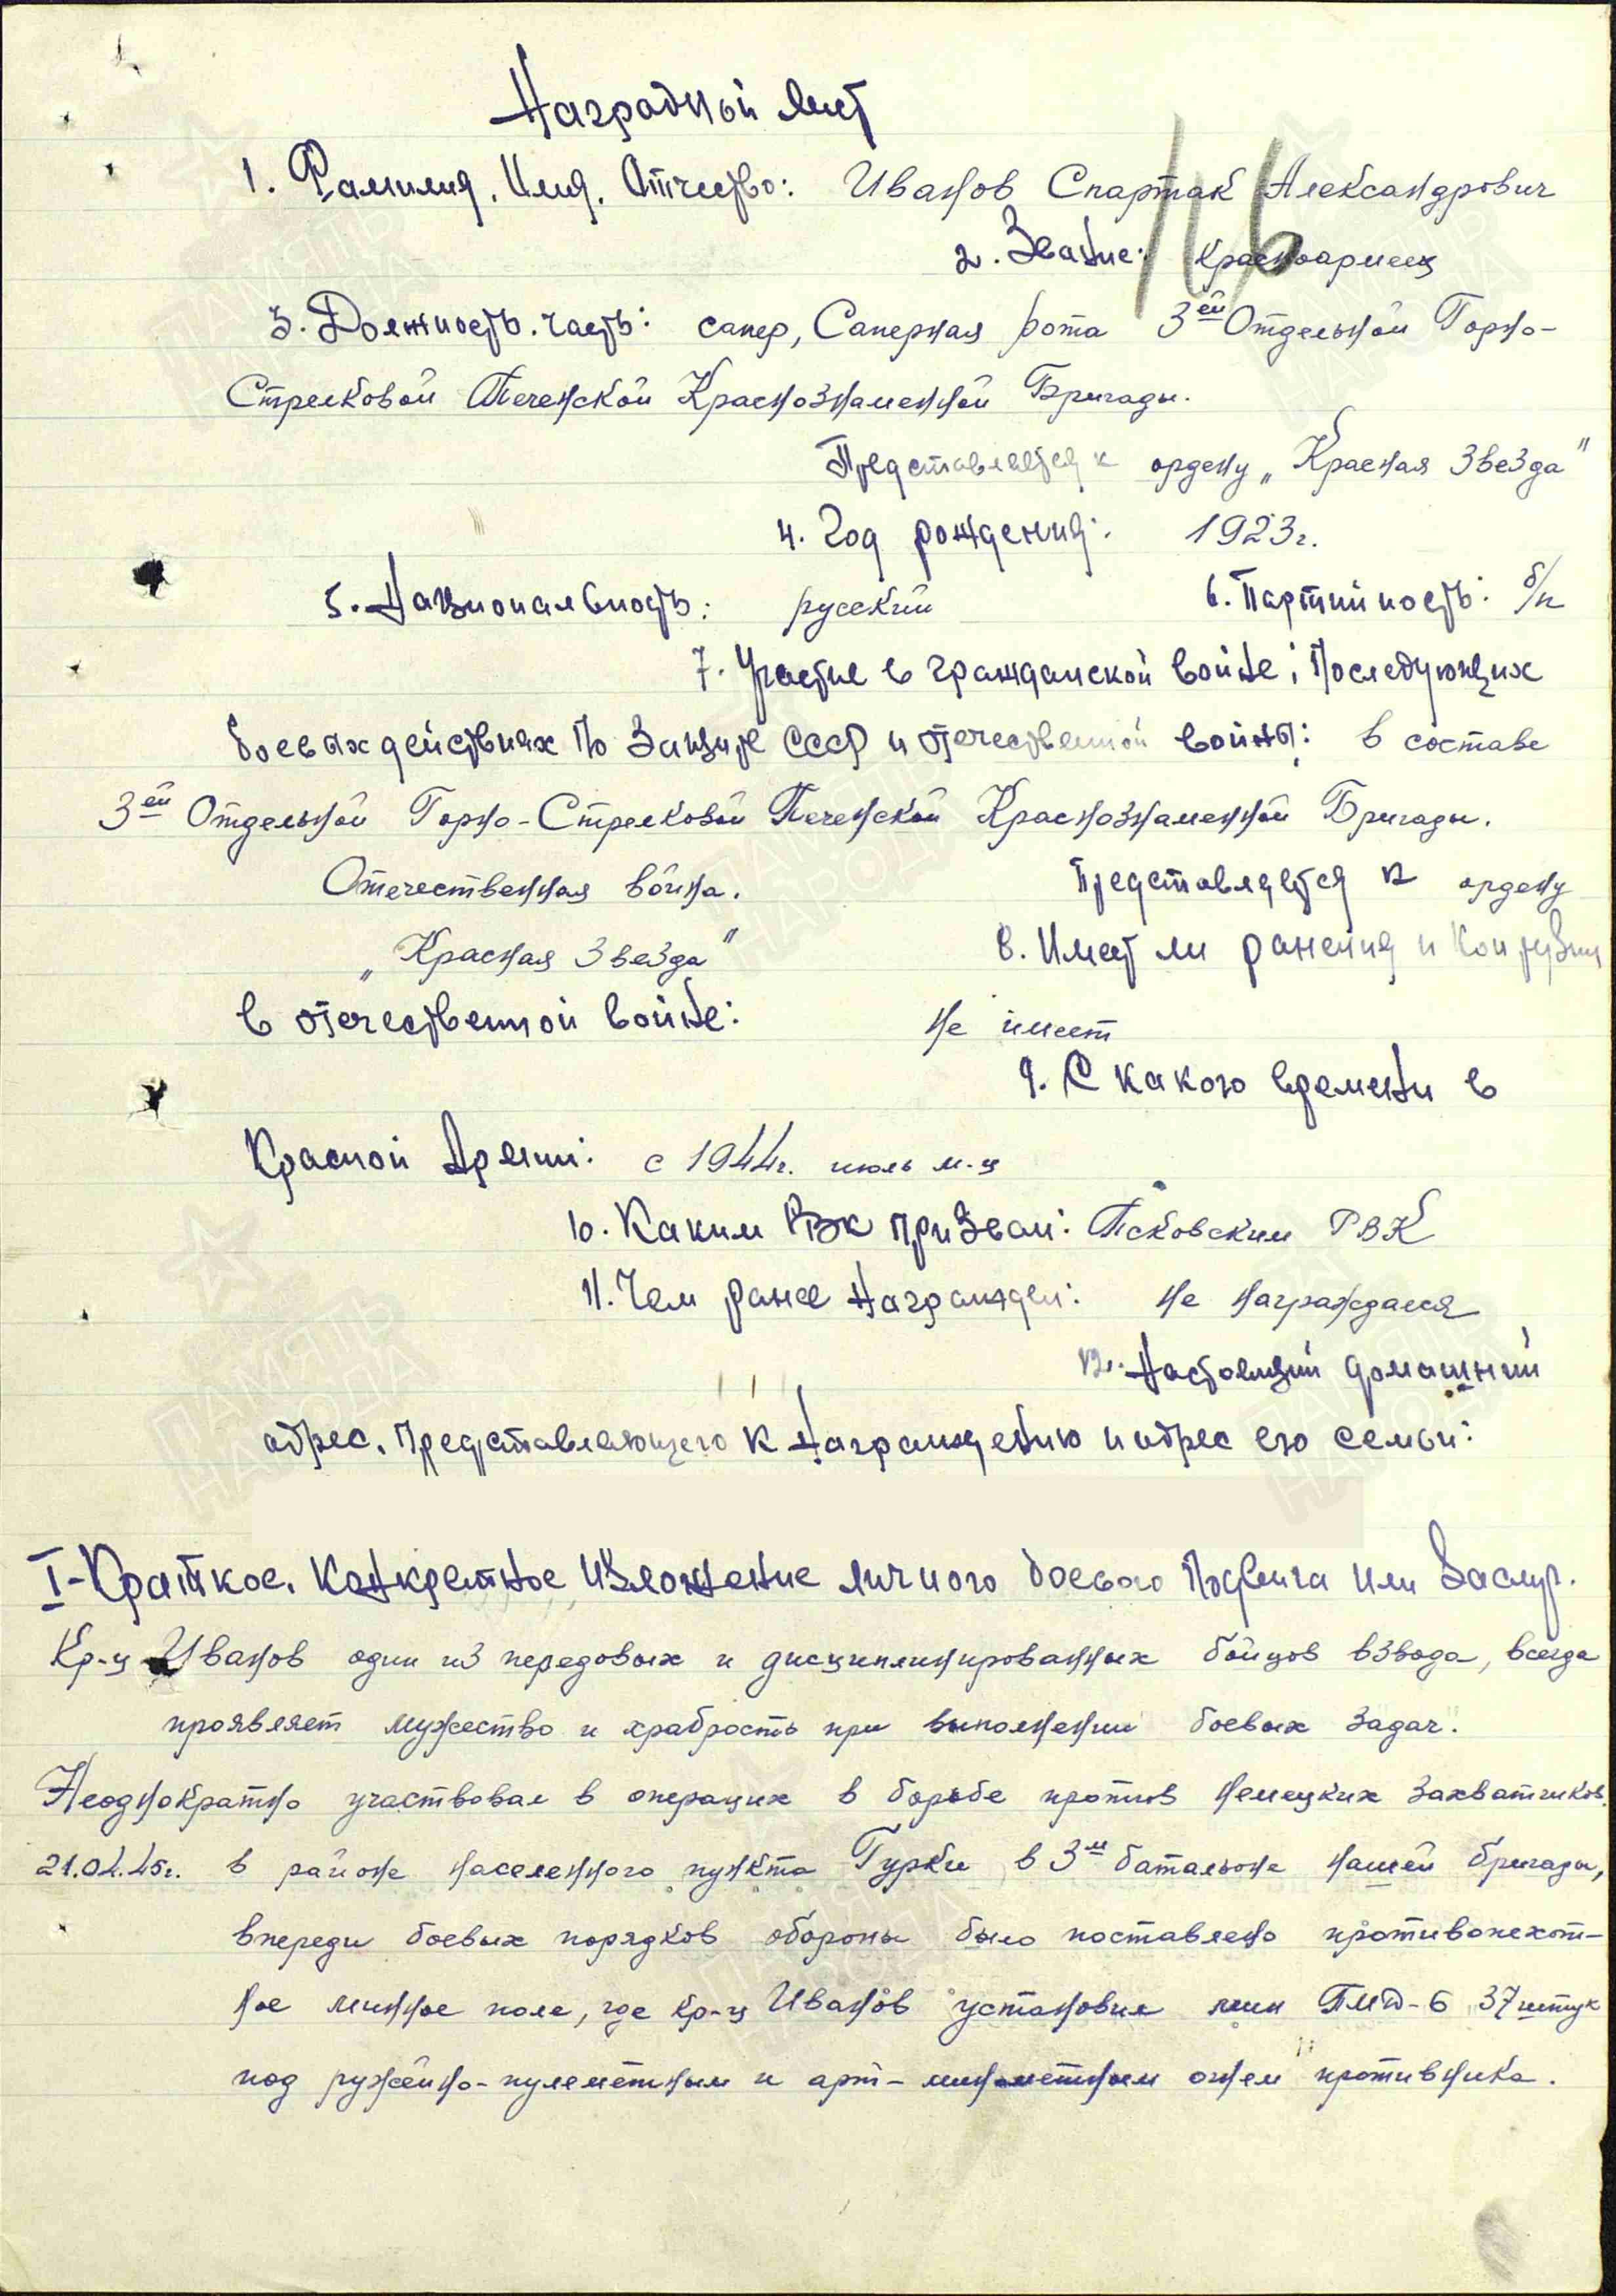 Наградной лист
116
1. Фамилия, Имя, Отчество: Иванов Спартак Александрович
2. Звание: красноармеец
3. Должность, часть: сапер, Саперная рота 3ей Отдельной Горно-
Стрелковой Печенской Краснознаменной Бригады.
Представляется к ордену „Красная Звезда"
4. Год рождения: 1923г.
5. Национальность: русский 6. Партийность: б/п
7. Участие в гражданской войне, последующих
боевых действиях по защите СССР и отечественной войны: в составе
3ей Отдельной Горно-Стрелковой Печенской Краснознаменной Бригады.
Отечественная война. Представляется к ордену
„Красная Звезда" 8. Имеет ли ранения и контузии
в отечественной войне: не имеет
9. С какого времени в
Красной Армии: с 1944г. июль м-ц
10. Каким РВК призван: Псковским РВК
11. Чем ранее награжден: не награждался
12. Настоящий домашний
адрес, представляющего к награждению и адрес его семьи:
I-Краткое, конкретное изложение личного боевого подвига или заслуг.
Кр-ц Иванов один из передовых и дисциплинированных бойцов взвода, всегда
проявляет мужество и храбрость при выполнении боевых задач.
Неоднократно участвовал в операциях в борьбе против немецких захватчиков.
21.04.45г. в районе населенного пункта Гурки в 3м батальоне нашей бригады,
впереди боевых порядков обороны было поставлено противопехот-
ное минное поле, где кр-ц Иванов установил мин ПМД-6 37 штук
под ружейно-пулеметным и арт-минометным огнем противника.
ПАМЯТЬ НАРОДА